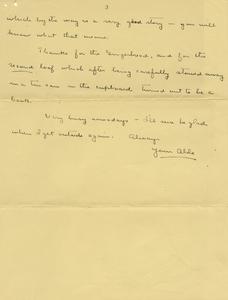 3
which by the way is a very good story – you will
know what that means.
Thanks for the gingerbread, and for the
second loaf which after being carefully stowed away
in a tin can in the cupboard turned out to be a
book.
Very busy nowadays – I'll sure be glad
when I get outside again. Always
Your Aldo